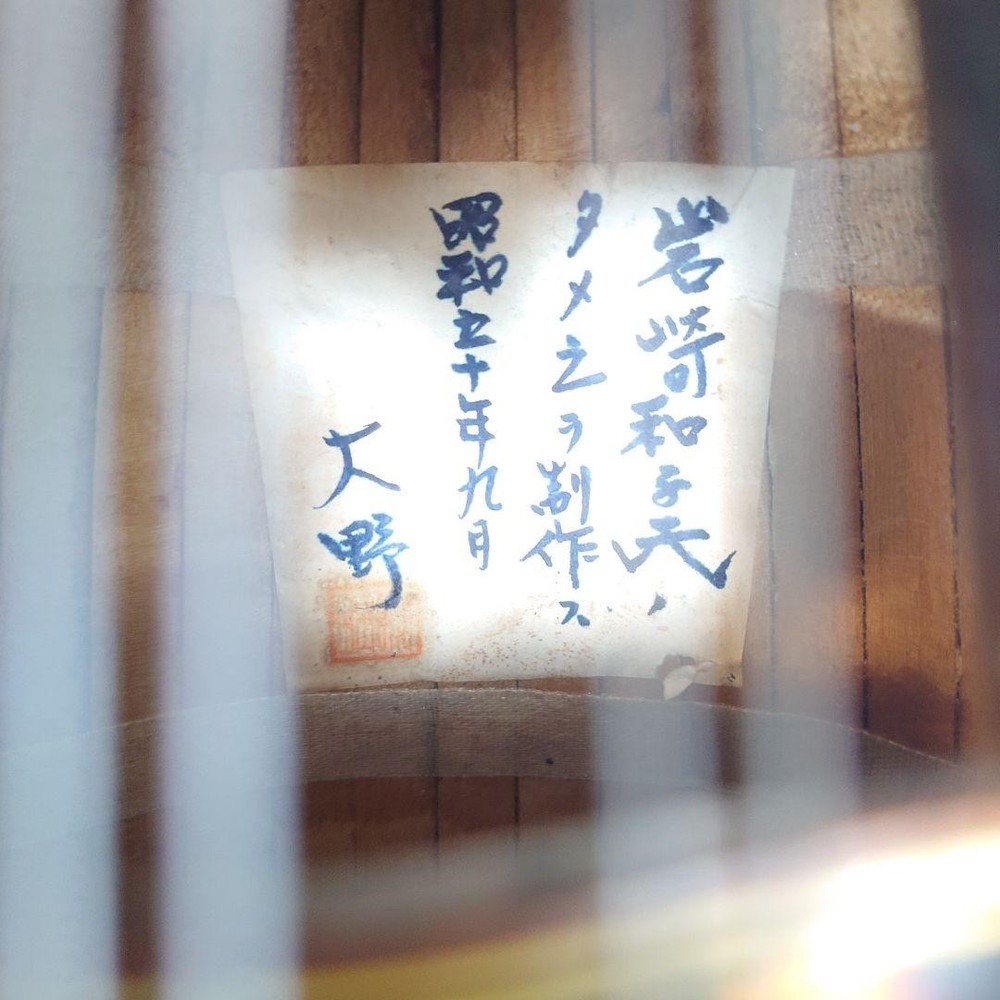 岩崎和子夫人ノ
タメ之ヲ制作ス
昭和五十年九月
大野